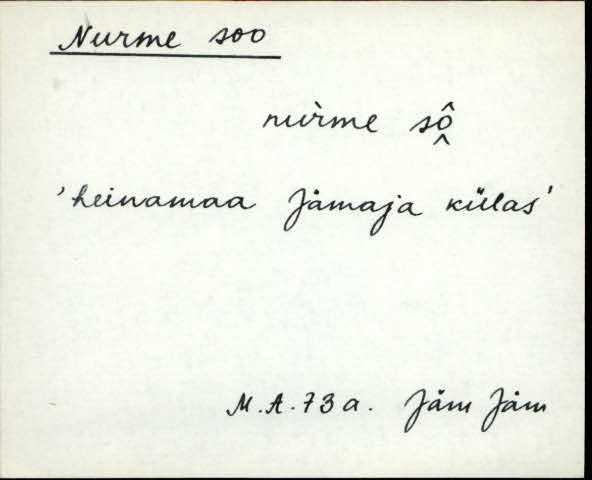 Nurme soo
nuìrme sô̭
'heinamaa Jämaja külas'
M.A. 73 a. Jäm Jäm